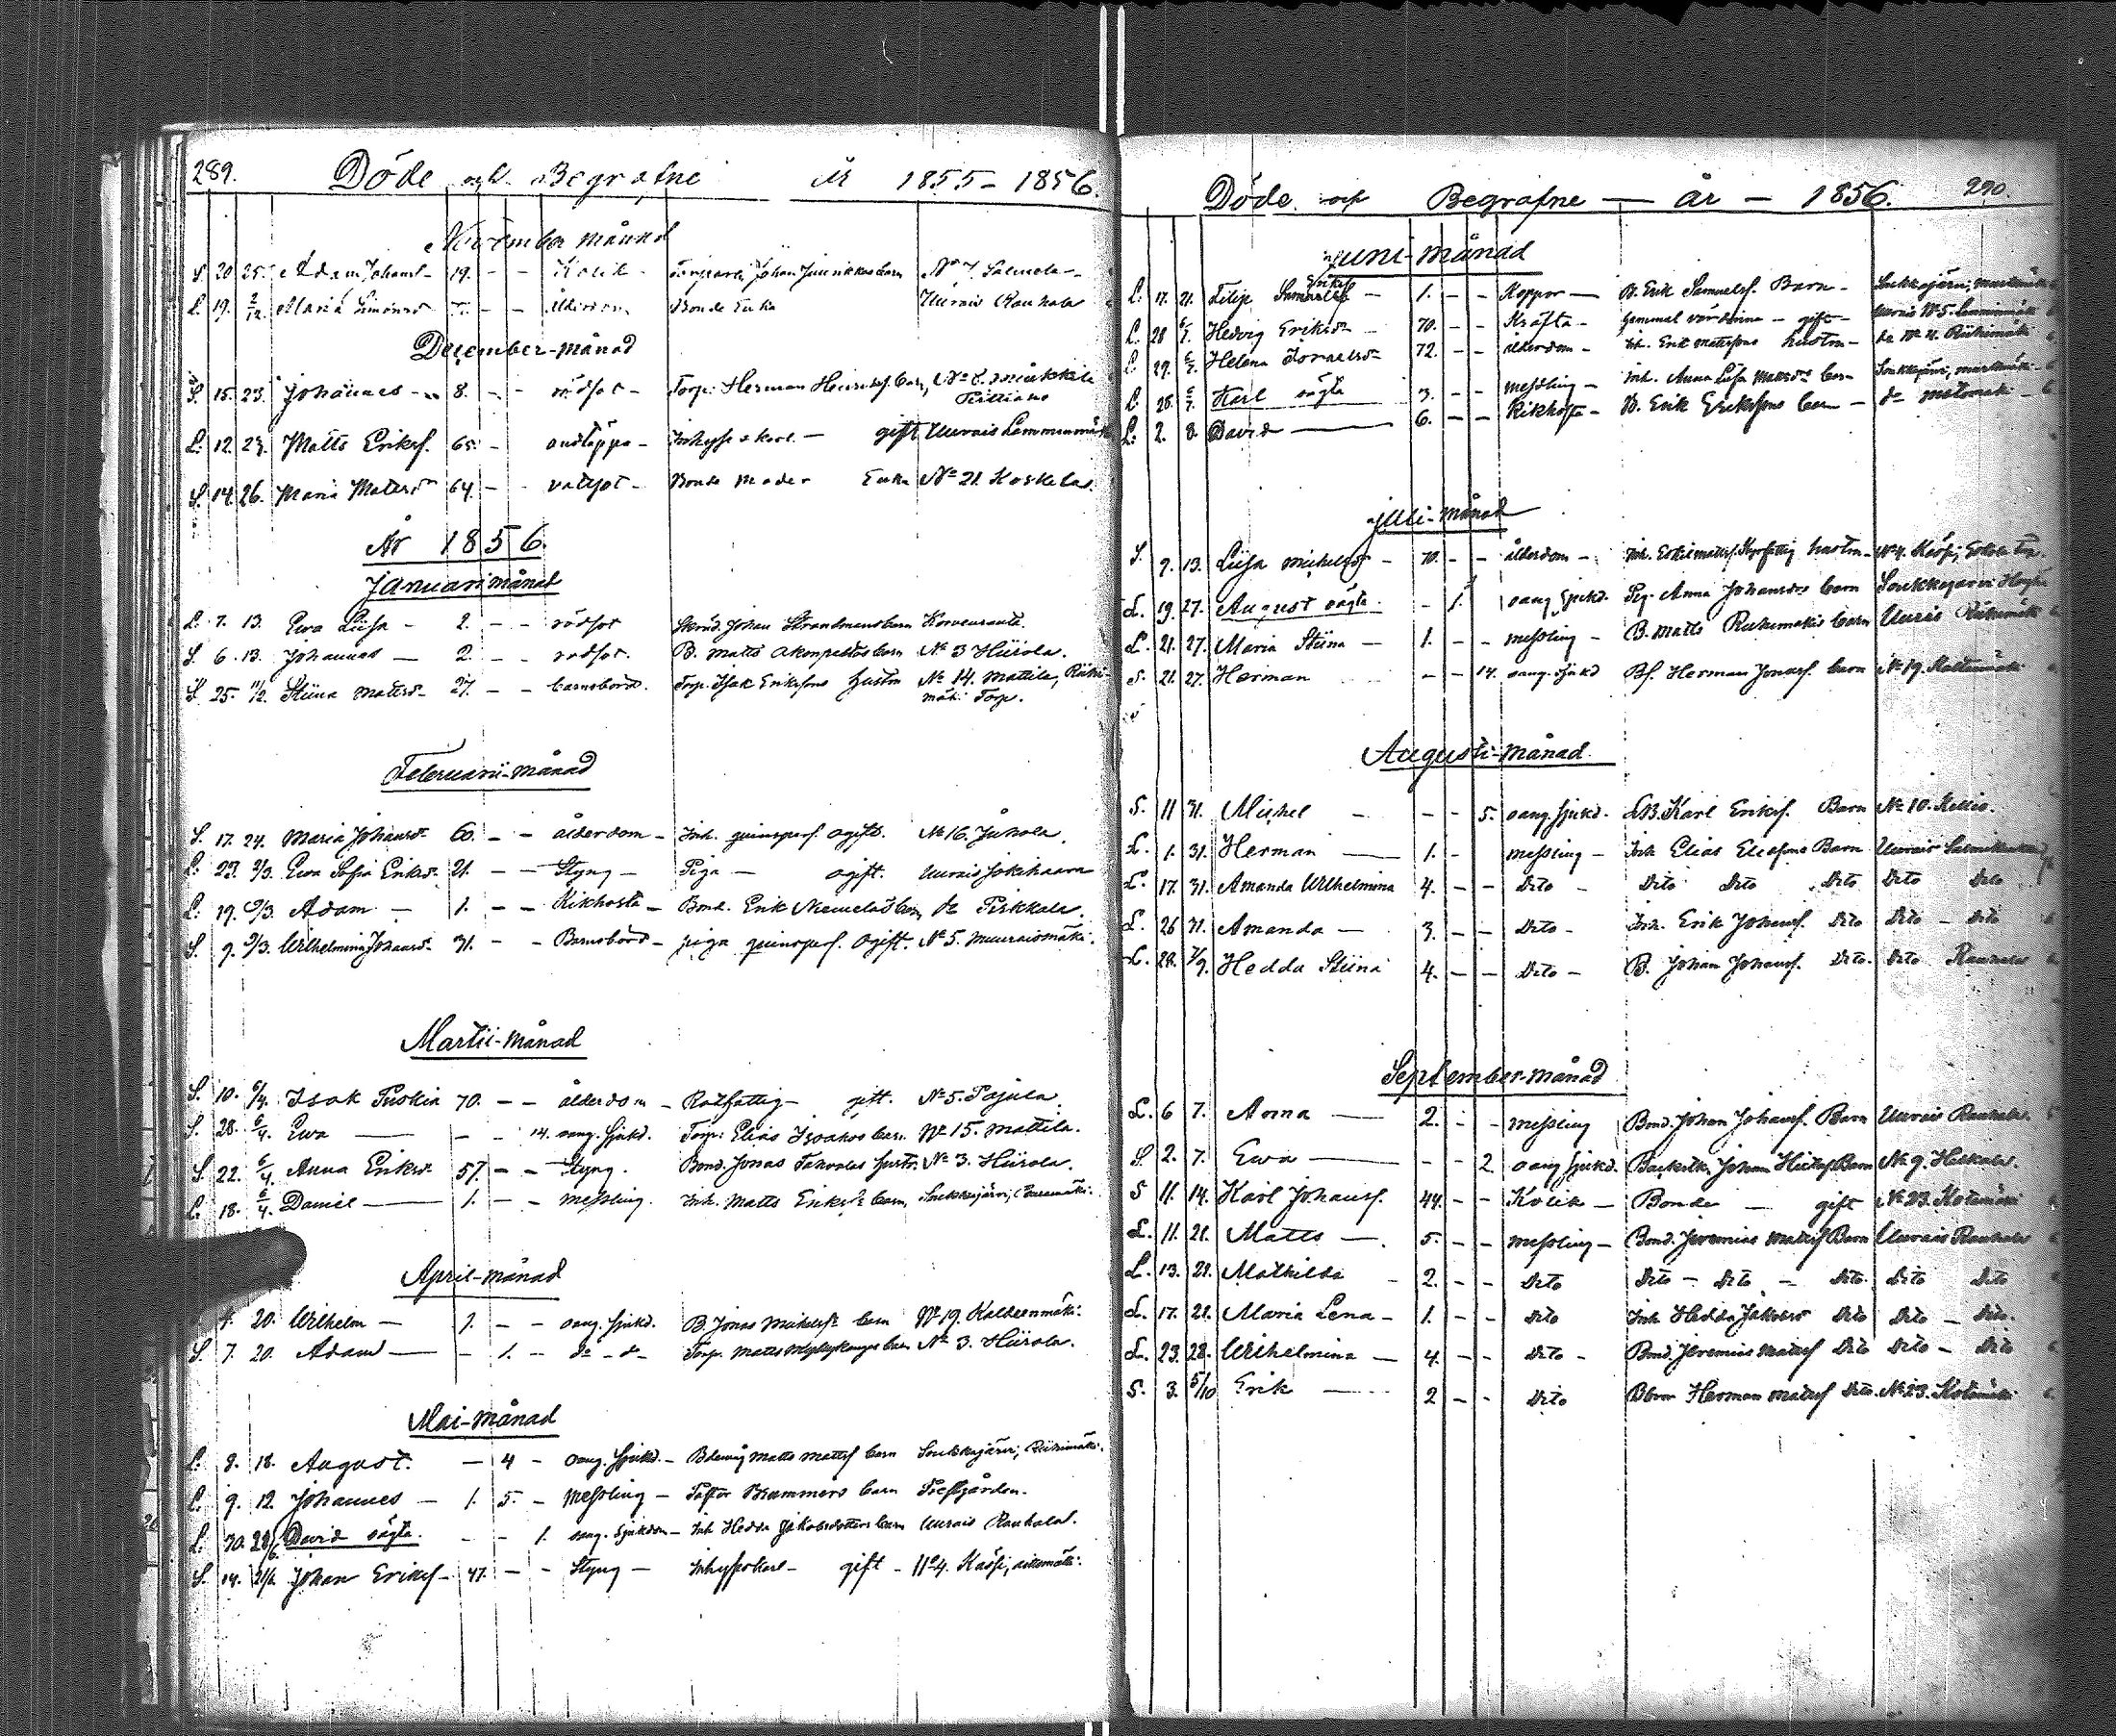 289. Döde och Begrafne år 1855-1856.
November månad
S. 20 25. Adam Johansf. 19. - - Kolik - Torparen Johan barn No 7. Salmela -
L. 19. 2/12. Maria Simonsd. - - ålderdom Bonde Enka Uurais Rauhala
December-månad
S. 15. 23. Johannes - 8. - - rödsot - Torp. Herman Heinrichsf. barn,
L. 12. 23. Matts Eriksf. 65. - andtäppa - Inhyses karl - gift Uurais Lamminmäki
S. 14. 26. Maria Mattsd. 64. - - vatsot - Bonde moder Enka No 21. Koskela.
År 1856.
Januari månad
L. 7. 13. Ewa Liisa - 2. - - rödsot Skräd. Johan Strandmans barn Korvenranta.
S. 6. 13. Johannes - 2. - - rodsot. B. Matts barn No 3 Hiirola.
S. 25. 11/2. Stiina Mattsd. 27. - - barnsbörd. Torp. Isak Erikssons hustru No 14. Mattila, Riihi-
mäki Torp.
Februarii-månad
S. 17. 24. Maria Johansd. 60. - - ålderdom - Inh. qvinspers. ogift. No 16. Juhola.
L. 23. 2/3. Ewa Sofia Eriksd. 21. - - Styng - Piga - ogift. Uurais Jokihaara
L. 19. 9/3. Adam - 1. - - Kikhosta - Bond. Erik Niemelas barn do Pirkkala.
S. 9. 9/3. Wilhelmina Johansd. 31. - - Barnsbörd - piga qvinspers. Ogift. No 5. Muuraismäki.
Martii-månad
S. 10. 6/4. Isak Puskia 70. - - ålderdom - Rotfattig - gift. No 5. Pajula.
S. 28. 6/4. Ewa - - 14. oang. sjukd. Torp. Elias Isaaks barn. No 15. Mattila.
S. 22. 6/4. Anna Eriksd. 57. - - Styng. Bond. Jonas Tahvolas hustr. No 3. Hiirola.
L. 18. 6/4. Daniel - 1. - - messling. Inh. Matts Eriksf. barn, Soukkojärvi,
April-månad
4. 20. Wilhelm - 1. - - oang. sjukd. B. Jonas Mickelsf. barn No 19. Kalteenmäki.
S. 7. 20. Adam - - 1. - do - do - Torp. Matts barn No 3. Hiirola.
Mai-månad
L. 8. 18. August. - 4 - oang. sjukd. - Matts Mattsf. barn Soukkojärvi, Riihimäki.
L. 9. 12. Johannes - 1. 5. - Messling - Pastor Brummers barn Prestgården.
L. 30. 29/6. David oägta. - - 1. oang. sjukdom - Inh. Hedda Jakobsdotters barn Uurais Rauhala.
S. 14. Johan Eriksf. - 47. - - Styng - Inhysekarl - gift - No 4. Kaspi,
Döde och Begrafne - år - 1856. 290.
Juni-månad
L. 17. 21. Filip - 1. - - Koppor - B. Erik Samuelsf. Barn - Soukkojärvi,
L. 28 6/7. Hedvig Eriksdr - 70. - - Kräfta - gammal - gift - Uurais No 5. Lamminmäki
L. 29. 6/7. Helena - 72. - - ålderdom - Inh. Erik Mattssons hustru - do No 4. Riihimäki
L. 28. 6/7. Karl oägta 3. - - messling - Inh. Anna Lisa Mattsdr barn Soukkojärvi,
L. 2. 8. David - 6. - - Kikhosta - B. Erik Erikssons barn - do
Juli-månad
S. 9. 13. Liisa Mickelsdr - 70. - - ålderdom - Inh. hustru - No 4.
L. 19. 27. August oägta. - 1. oang. sjukd. Pig. Anna Johansdrs barn Soukkojärvi
L. 21. 27. Maria Stiina - 1. - - messling - B. Matts Riihimäkis barn Uurais Riihimäki
S. 21. 27. Herman - - 14. oang. sjukd Bf. Herman Jonasf. barn No 19. Kalteenmäki
Augusti-månad.
S. 11 31. Michel - - - 5. oang. sjukd. Karl Eriksf. Barn No 10.
L. 1. 31. Herman - 1. - messling - Inh. Elias Barn Uurais
L. 17. 31. Amanda Wilhelmina 4. - - Dito - Dito Dito Dito Dito Dito
L. 26 31. Amanda - 3. - - Dito - Inh. Erik Johansf. Dito Dito - Dito
L. 28. 7/9. Hedda Stiina 4. - - Dito - B. Johan Johansf. Dito. Dito Rauhala
September-månad
L. 6 7. Anna - 2. - - messling Bond. Johan Johansf. Barn Uurais Rauhala.
S. 2. 7. Ewa - - - 2. oang. sjukd. Johan Barn No 9.
S 11. 14. Karl Johansf. 44. - - Kolik - Bonde - gift No 23. Kotamäki
L. 11. 21. Matts - 5. - - messling - Bond. Jeremias Mattsf Barn Uurais Rauhala
L. 13. 21. Mathilda - 2. - - Dito Dito - Dito - Dito. Dito Dito
L. 17. 21. Maria Lena - 1. - - Dito Inh. Hedda Jakobsd Dito Dito - Dito.
L. 23. 28. Wilhelmina - 4. - - Dito - Bond. Jeremias Mattsf Dito Dito - Dito
S. 3. 5/10 Erik - 2 - - Dito Herman Mattsf Dito. No 23. Kotamäki